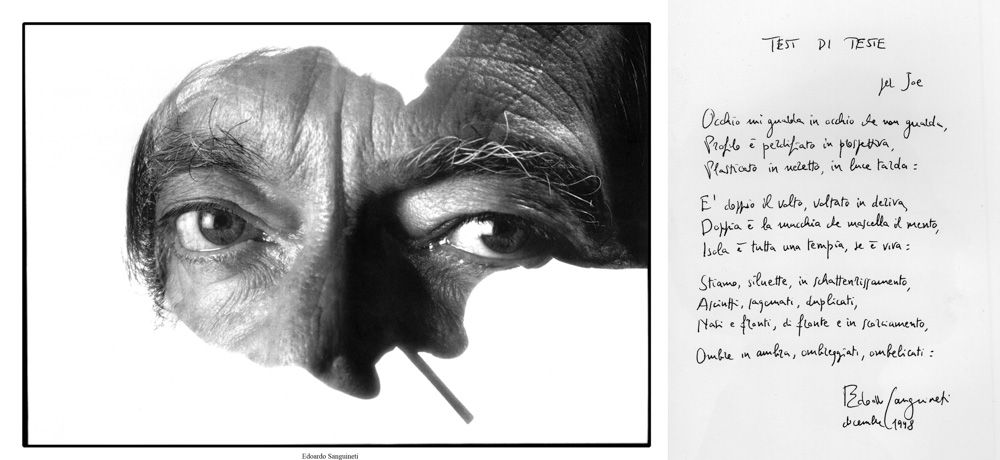 Edoardo Sanguineti
TEST DI TESTE
per Joe
Occhio mi guarda in occhio che non guarda,
Profilo è perdifiato in prospettiva,
Plasticato in neretto, in luce tarda:
E' doppio il volto, voltato in deriva,
Doppia è la macchia che mascella il mento,
Isola è tutta una tempia, se è viva:
Stiamo, siluette, in schattenrissamento,
Asciutti, sagomati, duplicati,
Nasi e fronti, di fronte e in scorciamento,
Ombre in ambra, ombreggiati, ombelicati:
Edoardo Sanguineti
dicembre 1998